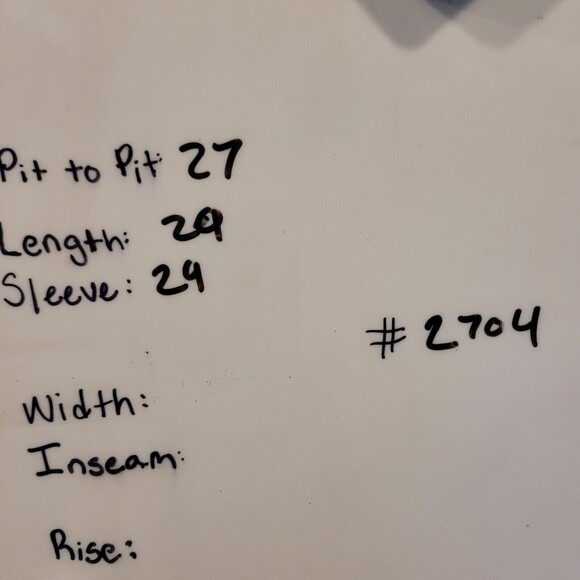 Pit to Pit: 27
Length: 29
Sleeve: 24
#2704
Width:
Inseam:
Rise: